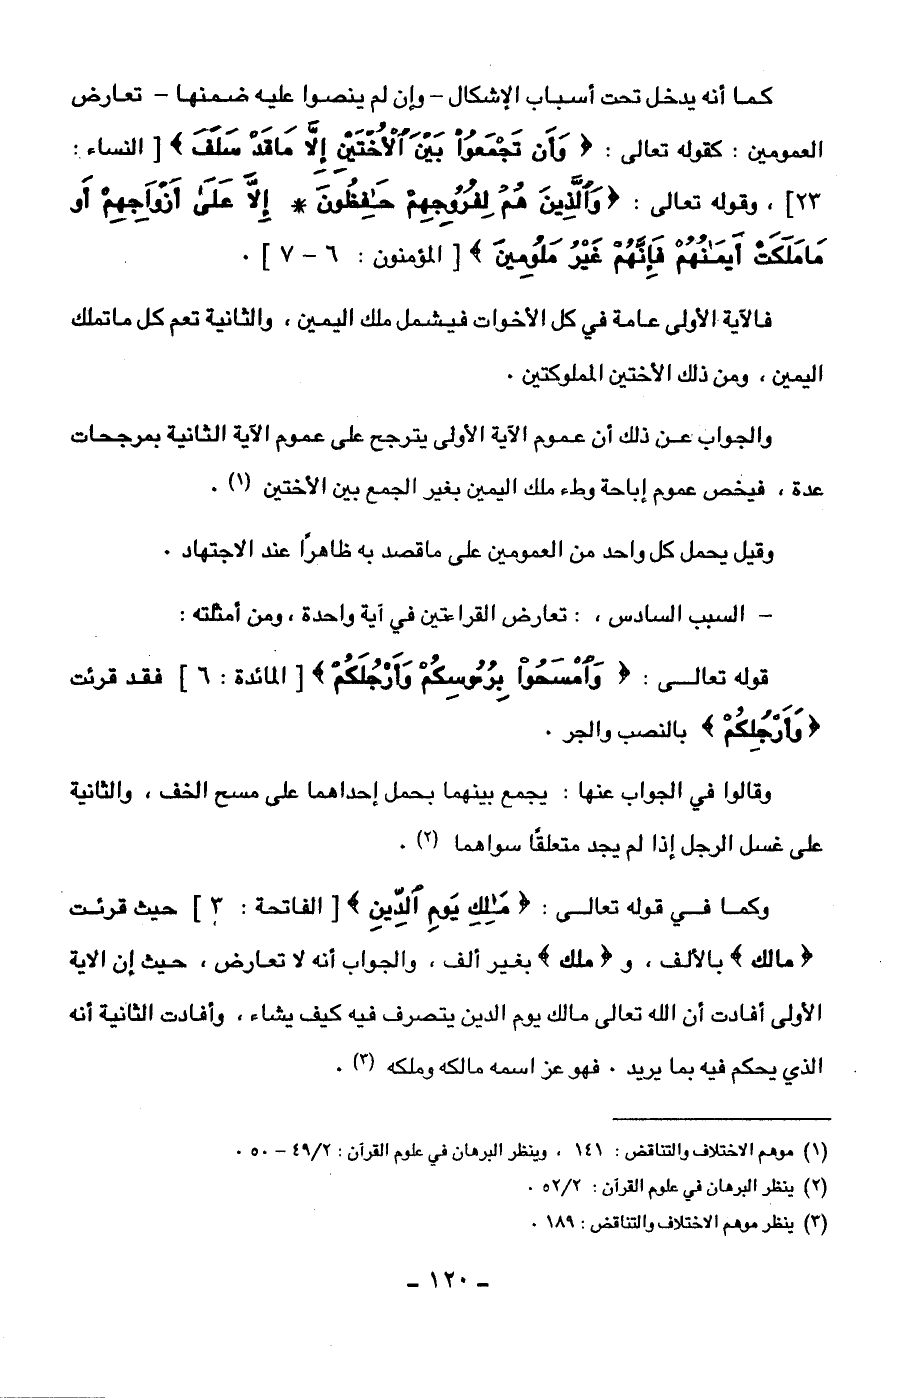 كما أنه يدخل تحت أسباب الإشكال – وإن لم ينصوا عليه ضمنها – تعارض
العمومين : كقوله تعالى : ﴿ وَأَن تَجْمَعُواْ بَيْنَ ٱلْأُخْتَيْنِ إِلَّا مَاقَدْ سَلَفَ ﴾ [ النساء :
٢٣] ، وقوله تعالى : ﴿ وَٱلَّذِينَ هُمْ لِفُرُوجِهِمْ حَٰفِظُونَ * إِلَّا عَلَىٰ أَزْوَاجِهِمْ أَو
مَامَلَكَتْ أَيْمَٰنُهُمْ فَإِنَّهُمْ غَيْرُ مَلُومِينَ ﴾ [ المؤمنون : ٦ – ٧ ] .
فالآية الأولى عامة في كل الأخوات فيشمل ملك اليمين ، والثانية تعم كل ماتملك
اليمين ، ومن ذلك الأختين المملوكتين .
والجواب عن ذلك أن عموم الآية الأولى يترجح على عموم الآية الثانية بمرجحات
عدة ، فيخص عموم إباحة وطء ملك اليمين بغير الجمع بين الأختين (١) .
وقيل يحمل كل واحد من العمومين على ماقصد به ظاهرًا عند الاجتهاد .
– السبب السادس ، : تعارض القراءتين في آية واحدة ، ومن أمثلته :
قوله تعالى : ﴿ وَٱمْسَحُواْ بِرُءُوسِكُمْ وَأَرْجُلَكُمْ ﴾ [ المائدة : ٦ ] فقد قرئت
﴿ وَأَرْجُلِكُمْ ﴾ بالنصب والجر .
وقالوا في الجواب عنها : يجمع بينهما بحمل إحداهما على مسح الخف ، والثانية
على غسل الرجل إذا لم يجد متعلقًا سواهما (٢) .
وكما في قوله تعالى : ﴿ مَٰلِكِ يَوْمِ ٱلدِّينِ ﴾ [ الفاتحة : ٣ ] حيث قرئت
﴿ مالك ﴾ بالألف ، و ﴿ ملك ﴾ بغير ألف ، والجواب أنه لا تعارض ، حيث إن الاية
الأولى أفادت أن الله تعالى مالك يوم الدين يتصرف فيه كيف يشاء ، وأفادت الثانية أنه
الذي يحكم فيه بما يريد . فهو عز اسمه مالكه وملكه (٣) .
(١) موهم الاختلاف والتناقض : ١٤١ ، وينظر البرهان في علوم القرآن : ٤٩/٢ – ٥٠ .
(٢) ينظر البرهان في علوم القرآن : ٥٢/٢ .
(٣) ينظر موهم الاختلاف والتناقض : ١٨٩ .
– ١٢٠ –